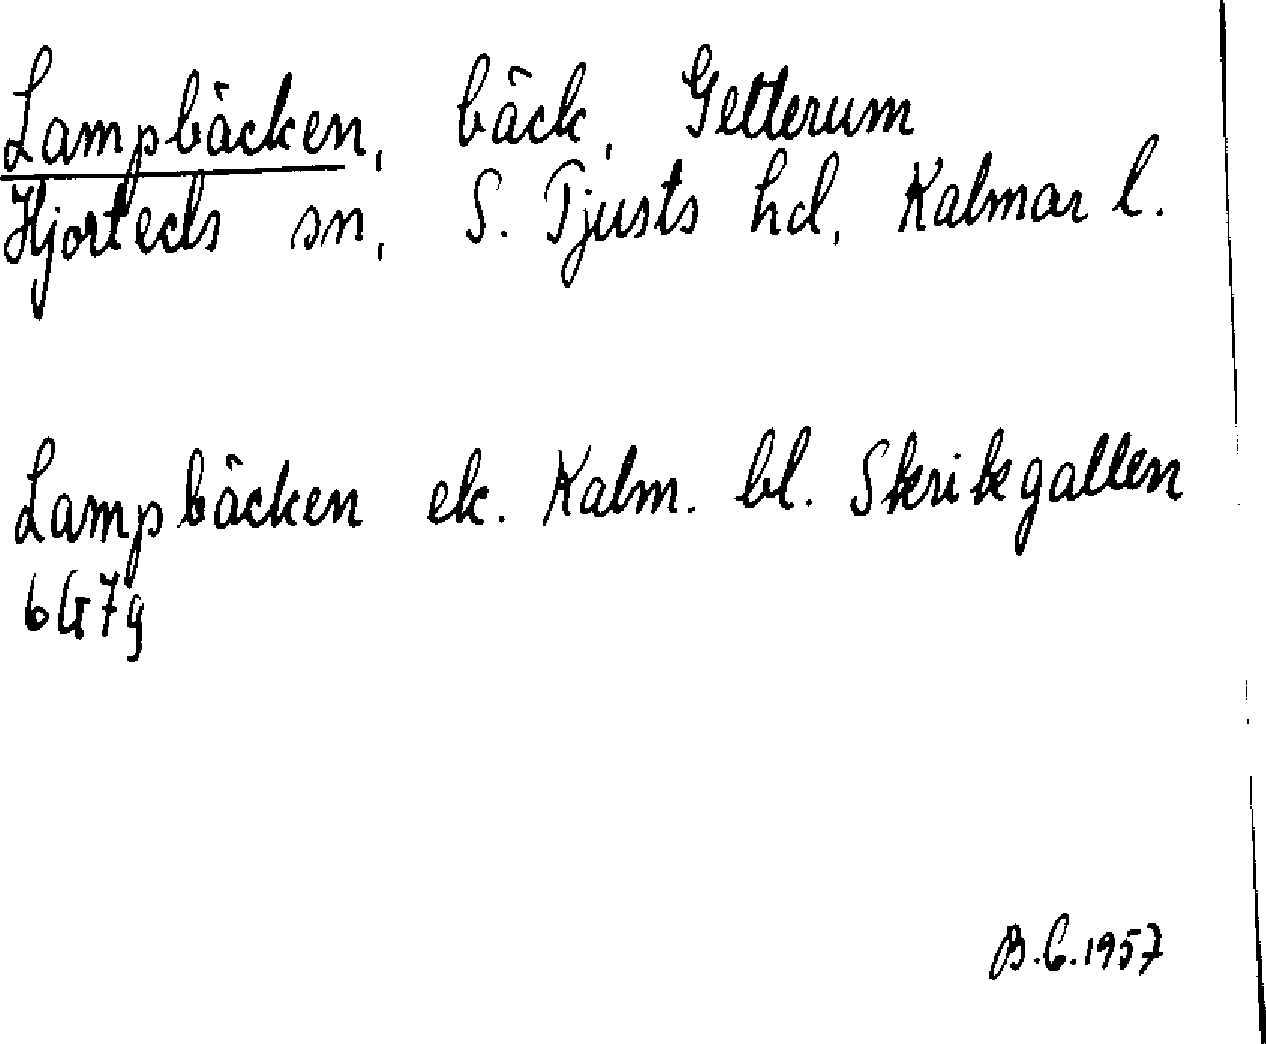 Lampbäcken, bäck, Getterum
Hjorteds sn, S. Tjusts hd, Kalmar l.
Lampbäcken ek. Kalm. bl. Skrikgallen
6G7g
B.G.1957